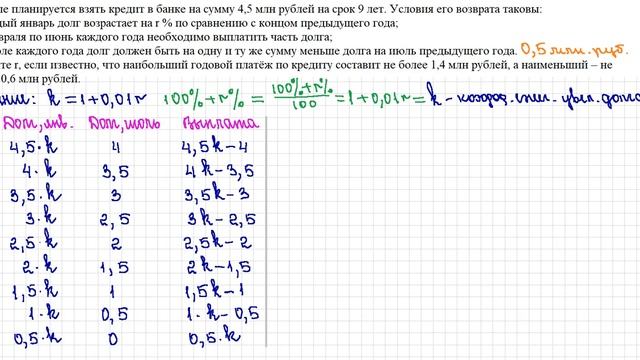 ле планируется взять кредит в банке на сумму 4,5 млн рублей на срок 9 лет. Условия его возврата таковы:
дый январь долг возрастает на r % по сравнению с концом предыдущего года;
враля по июнь каждого года необходимо выплатить часть долга;
оле каждого года долг должен быть на одну и ту же сумму меньше долга на июль предыдущего года. 0,5 млн. руб.
те r, если известно, что наибольший годовой платёж по кредиту составит не более 1,4 млн рублей, а наименьший – не
0,6 млн рублей.
ние: k = 1+0,01r 100%+r% = (100%+r%)/100 = 1+0,01r = k -
Долг, янв. Долг, июль Выплата
4,5·k 4 4,5k-4
4·k 3,5 4k-3,5
3,5·k 3 3,5k-3
3·k 2,5 3k-2,5
2,5·k 2 2,5k-2
2·k 1,5 2k-1,5
1,5·k 1 1,5k-1
1·k 0,5 1·k-0,5
0,5·k 0 0,5·k